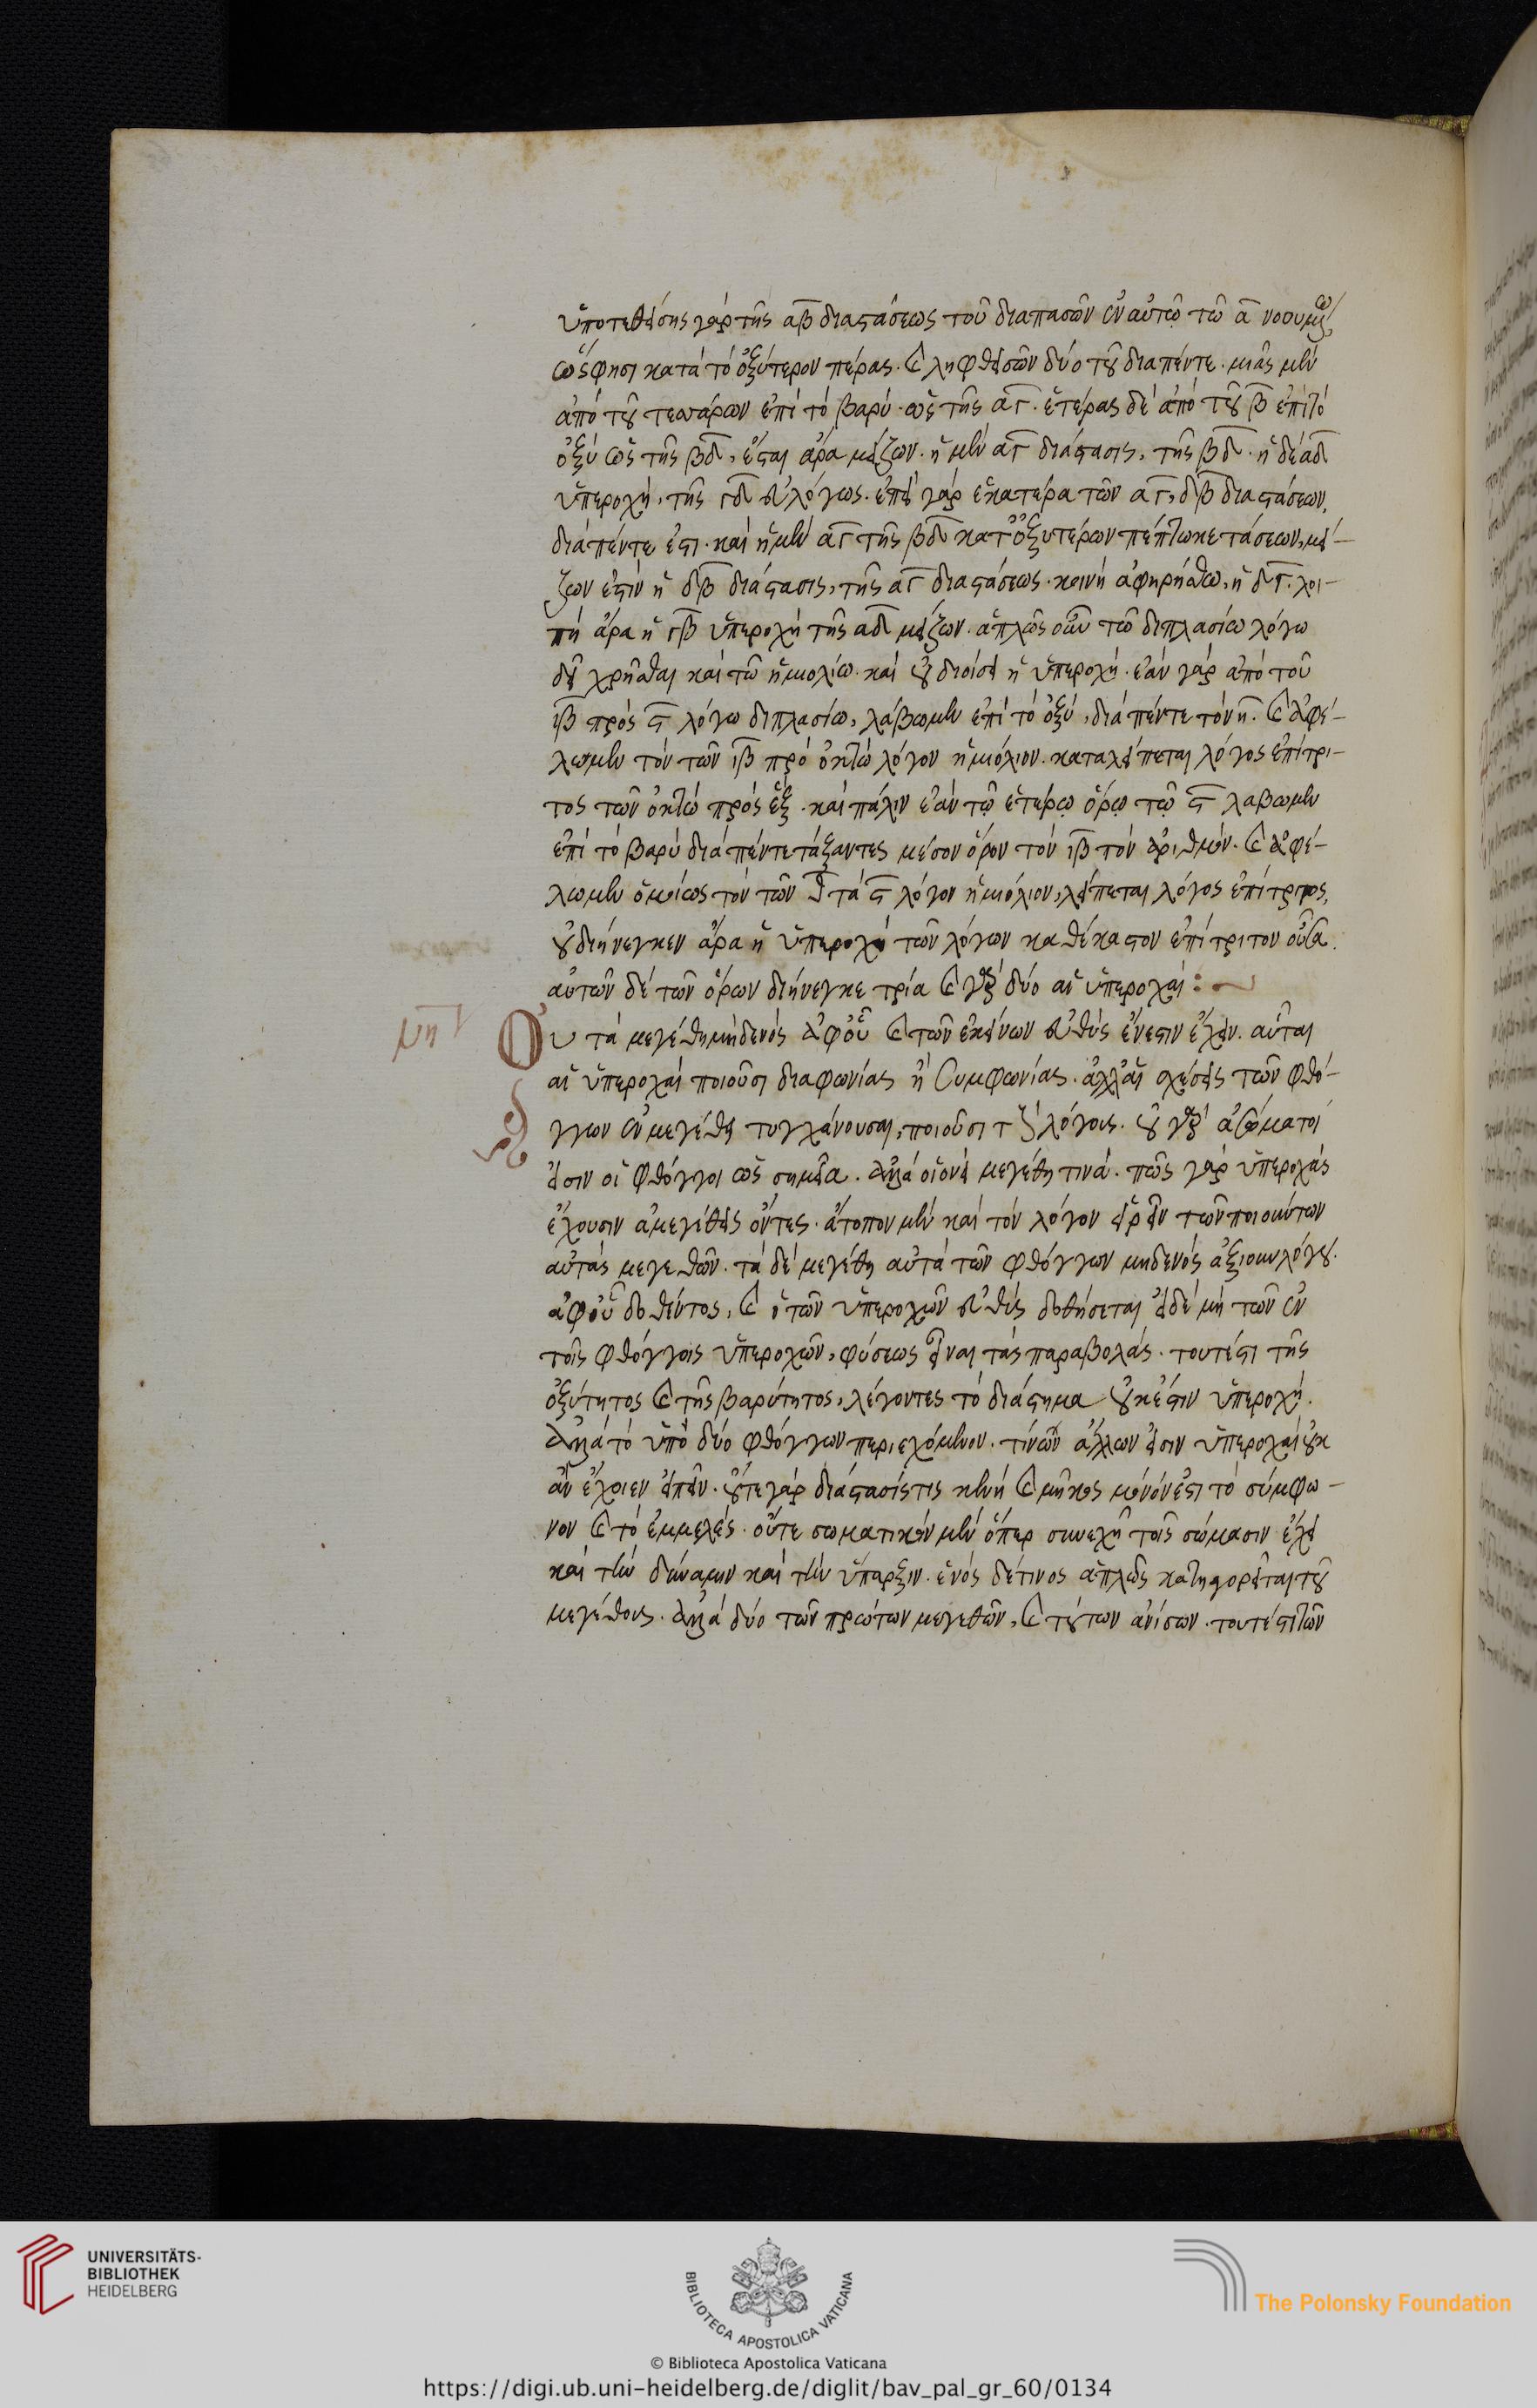 ὑποτεθείσης γὰρ τῆς αβ διαστάσεως τοῦ διαπασῶν ἐν αὐτῷ τῶ α νοουμένω
ὥς φησι κατὰ τὸ ὀξύτερον πέρας. καὶ ληφθεισῶν δύο τοῦ διαπέντε. μιᾶς μὲν
ἀπὸ τοῦ τεσσάρων ἐπὶ τὸ βαρὺ ὡς τῆς αγ. ἑτέρας δὲ ἀπὸ τοῦ β ἐπὶ τὸ
ὀξὺ ὡς τῆς βδ, ἔσται ἄρα μείζων. ἡ μὲν αγ διάστασις, τῆς βδ. ἡ δὲ αδ
ὑπεροχὴ, τῆς γδ εὐλόγως. ἐπεὶ γὰρ ἑκατέρα τῶν αγ, δβ διαστάσεων,
διαπέντε ἐστι. καὶ ἡ μὲν αγ τῆς βδ κατ' ὀξυτέρων πέπτωκε τάσεων, μεί-
ζων ἐστὶν ἡ δβ διάστασις, τῆς αγ διαστάσεως. κοινὴ ἀφηρήσθω, ἡ δγ. λοι-
πὴ ἄρα ἡ γβ ὑπεροχὴ τῆς αδ μείζων. ἁπλῶς οὖν τῶ διπλασίω λόγω
δεῖ χρῆσθαι καὶ τῶ ἡμιολίω. καὶ οὐ διοίσει ἡ ὑπεροχή. ἐὰν γὰρ ἀπὸ τοῦ
ιβ πρὸς ϛ λόγω διπλασίω, λάβωμεν ἐπὶ τὸ ὀξύ, διὰ πέντε τὸν η. καὶ ἀφέ-
λωμεν τὸν τῶν ιβ πρὸ ὀκτὼ λόγον ἡμιόλιον. καταλείπεται λόγος ἐπίτρι-
τος τῶν ὀκτὼ πρὸς ἕξ. καὶ πάλιν ἐὰν τῷ ἑτέρῳ ὅρῳ τῷ ϛ λαβωμεν
ἐπὶ τὸ βαρὺ διὰ πέντε τάξαντες μέσον ὅρον τὸν ιβ τὸν ἀριθμόν. καὶ ἀφέ-
λωμεν ὁμοίως τὸν τῶν θ τὰ ϛ λόγον ἡμιόλιον, λείπεται λόγος ἐπίτριτος,
οὐ διήνεγκεν ἄρα ἡ ὑπεροχὴ τῶν λόγων καθέκαστον ἐπίτριτον οὖσα.
αὐτῶν δὲ τῶν ὅρων διήνεγκε τρία καὶ γὰρ δύο αἱ ὑπεροχαί :~
Οὐ τὰ μεγέθη μηδενὸς ἀφ' οὗ καὶ τῶν ἐκείνων εὐθὺς ἔνεστιν ἔχειν. αὗται
αἱ ὑπεροχαὶ ποιοῦσι διαφωνίας ἢ συμφωνίας. ἀλλ' αἱ σχέσεις τῶν φθό-
γγων ἐν μεγέθει τυγχάνουσαι, ποιοῦσι τ λόγοις. οὐ γὰρ ἀσώματοί
εἰσιν οἱ φθόγγοι ὡς σημεῖα. ἀλλὰ οἱονεὶ μεγέθη τινά. πῶς γὰρ ὑπεροχὰς
ἔχουσιν ἀμεγέθεις ὄντες. ἄτοπον μὲν καὶ τὸν λόγον εὑρεῖν τῶν ποιούντων
αὐτὰς μεγεθῶν. τὰ δὲ μεγέθη αὐτὰ τῶν φθόγγων μηδενὸς ἀξιοῦν λόγου.
ἀφ' οὗ δοθέντος, καὶ ὁ τῶν ὑπεροχῶν εὐθὺς δοθήσεται εἰ δὲ μὴ τῶν ἐν
τοῖς φθόγγοις ὑπεροχῶν, φύσεως εἶναι τὰς παραβολάς. τουτέστι τῆς
ὀξύτητος καὶ τῆς βαρύτητος, λέγοντες τὸ διάστημα οὐκ ἔστιν ὑπεροχή.
ἀλλὰ τὸ ὑπὸ δύο φθόγγων περιεχόμενον. τίνων ἄλλων εἰσιν ὑπεροχαὶ οὐκ
ἂν ἔχοιεν εἰπεῖν. οὔτε γὰρ διάστασίς τις κενὴ καὶ μῆκος μόνόν ἐστι τὸ σύμφω-
νον καὶ τὸ ἐμμελές. οὔτε σωματικὸν μὲν ὅπερ συνεχῆ τοῖς σώμασιν ἔχει
καὶ τὴν δύναμιν καὶ τὴν ὕπαρξιν. ἑνός δέ τινος ἁπλῶς κατηγορεῖται τοῦ
μεγέθους. ἀλλὰ δύο τῶν πρώτων μεγεθῶν, καὶ τούτων ἀνίσων. τουτέστι τῶν
UNIVERSITÄTS-
BIBLIOTHEK
HEIDELBERG
BIBLIOTECA APOSTOLICA VATICANA
The Polonsky Foundation
© Biblioteca Apostolica Vaticana
https://digi.ub.uni-heidelberg.de/diglit/bav_pal_gr_60/0134